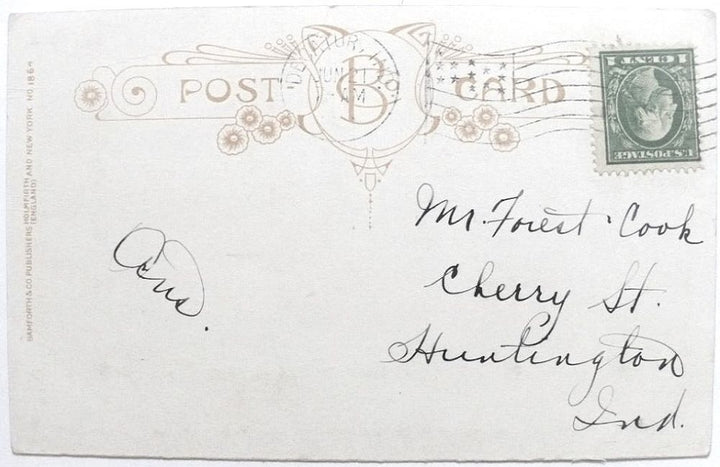 POST CARD
B
DECATUR, IND.
JUN 21
M
1 CENT 1
U.S. POSTAGE
BAMFORTH & CO PUBLISHERS HOLMFIRTH AND NEW YORK NO. 1864
(ENGLAND)
Mr. Forest Cook
Cherry St.
Huntington
Ind.
Ans.